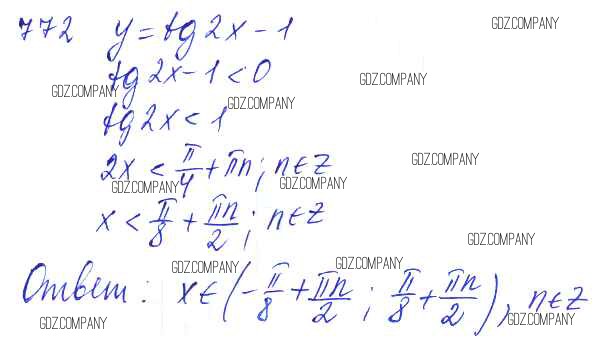 772 y = tg 2x - 1
GDZ.COMPANY
tg 2x - 1 < 0
GDZ.COMPANY
GDZ.COMPANY
GDZ.COMPANY
tg 2x < 1
2x < π/4 + πn; n ∈ Z
GDZ.COMPANY
GDZ.COMPANY
GDZ.COMPANY
x < π/8 + πn/2; n ∈ Z
GDZ.COMPANY
GDZ.COMPANY
GDZ.COMPANY
Ответ: x ∈ (-π/8 + πn/2; π/8 + πn/2), n ∈ Z
GDZ.COMPANY
GDZ.COMPANY